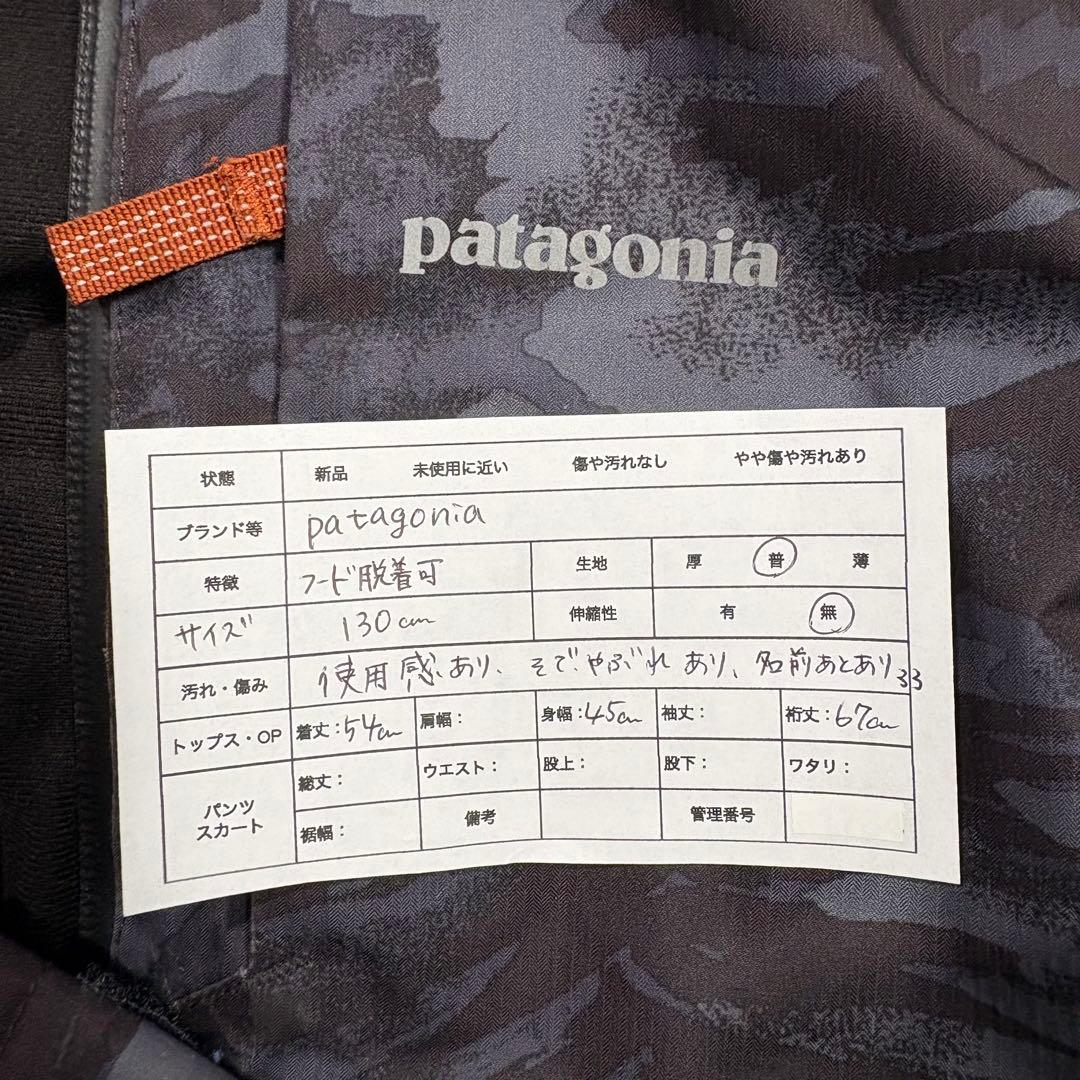 patagonia
状態 新品 未使用に近い 傷や汚れなし やや傷や汚れあり
ブランド等 patagonia
特徴 フード脱着可 生地 厚 普 薄
サイズ 130cm 伸縮性 有 無
汚れ・傷み 使用感あり、そでやぶれあり、名前あとあり33
トップス・OP 着丈:54cm 肩幅: 身幅:45cm 袖丈: 裄丈:67cm
パンツ スカート 総丈: ウエスト: 股上: 股下: ワタリ:
裾幅: 備考 管理番号